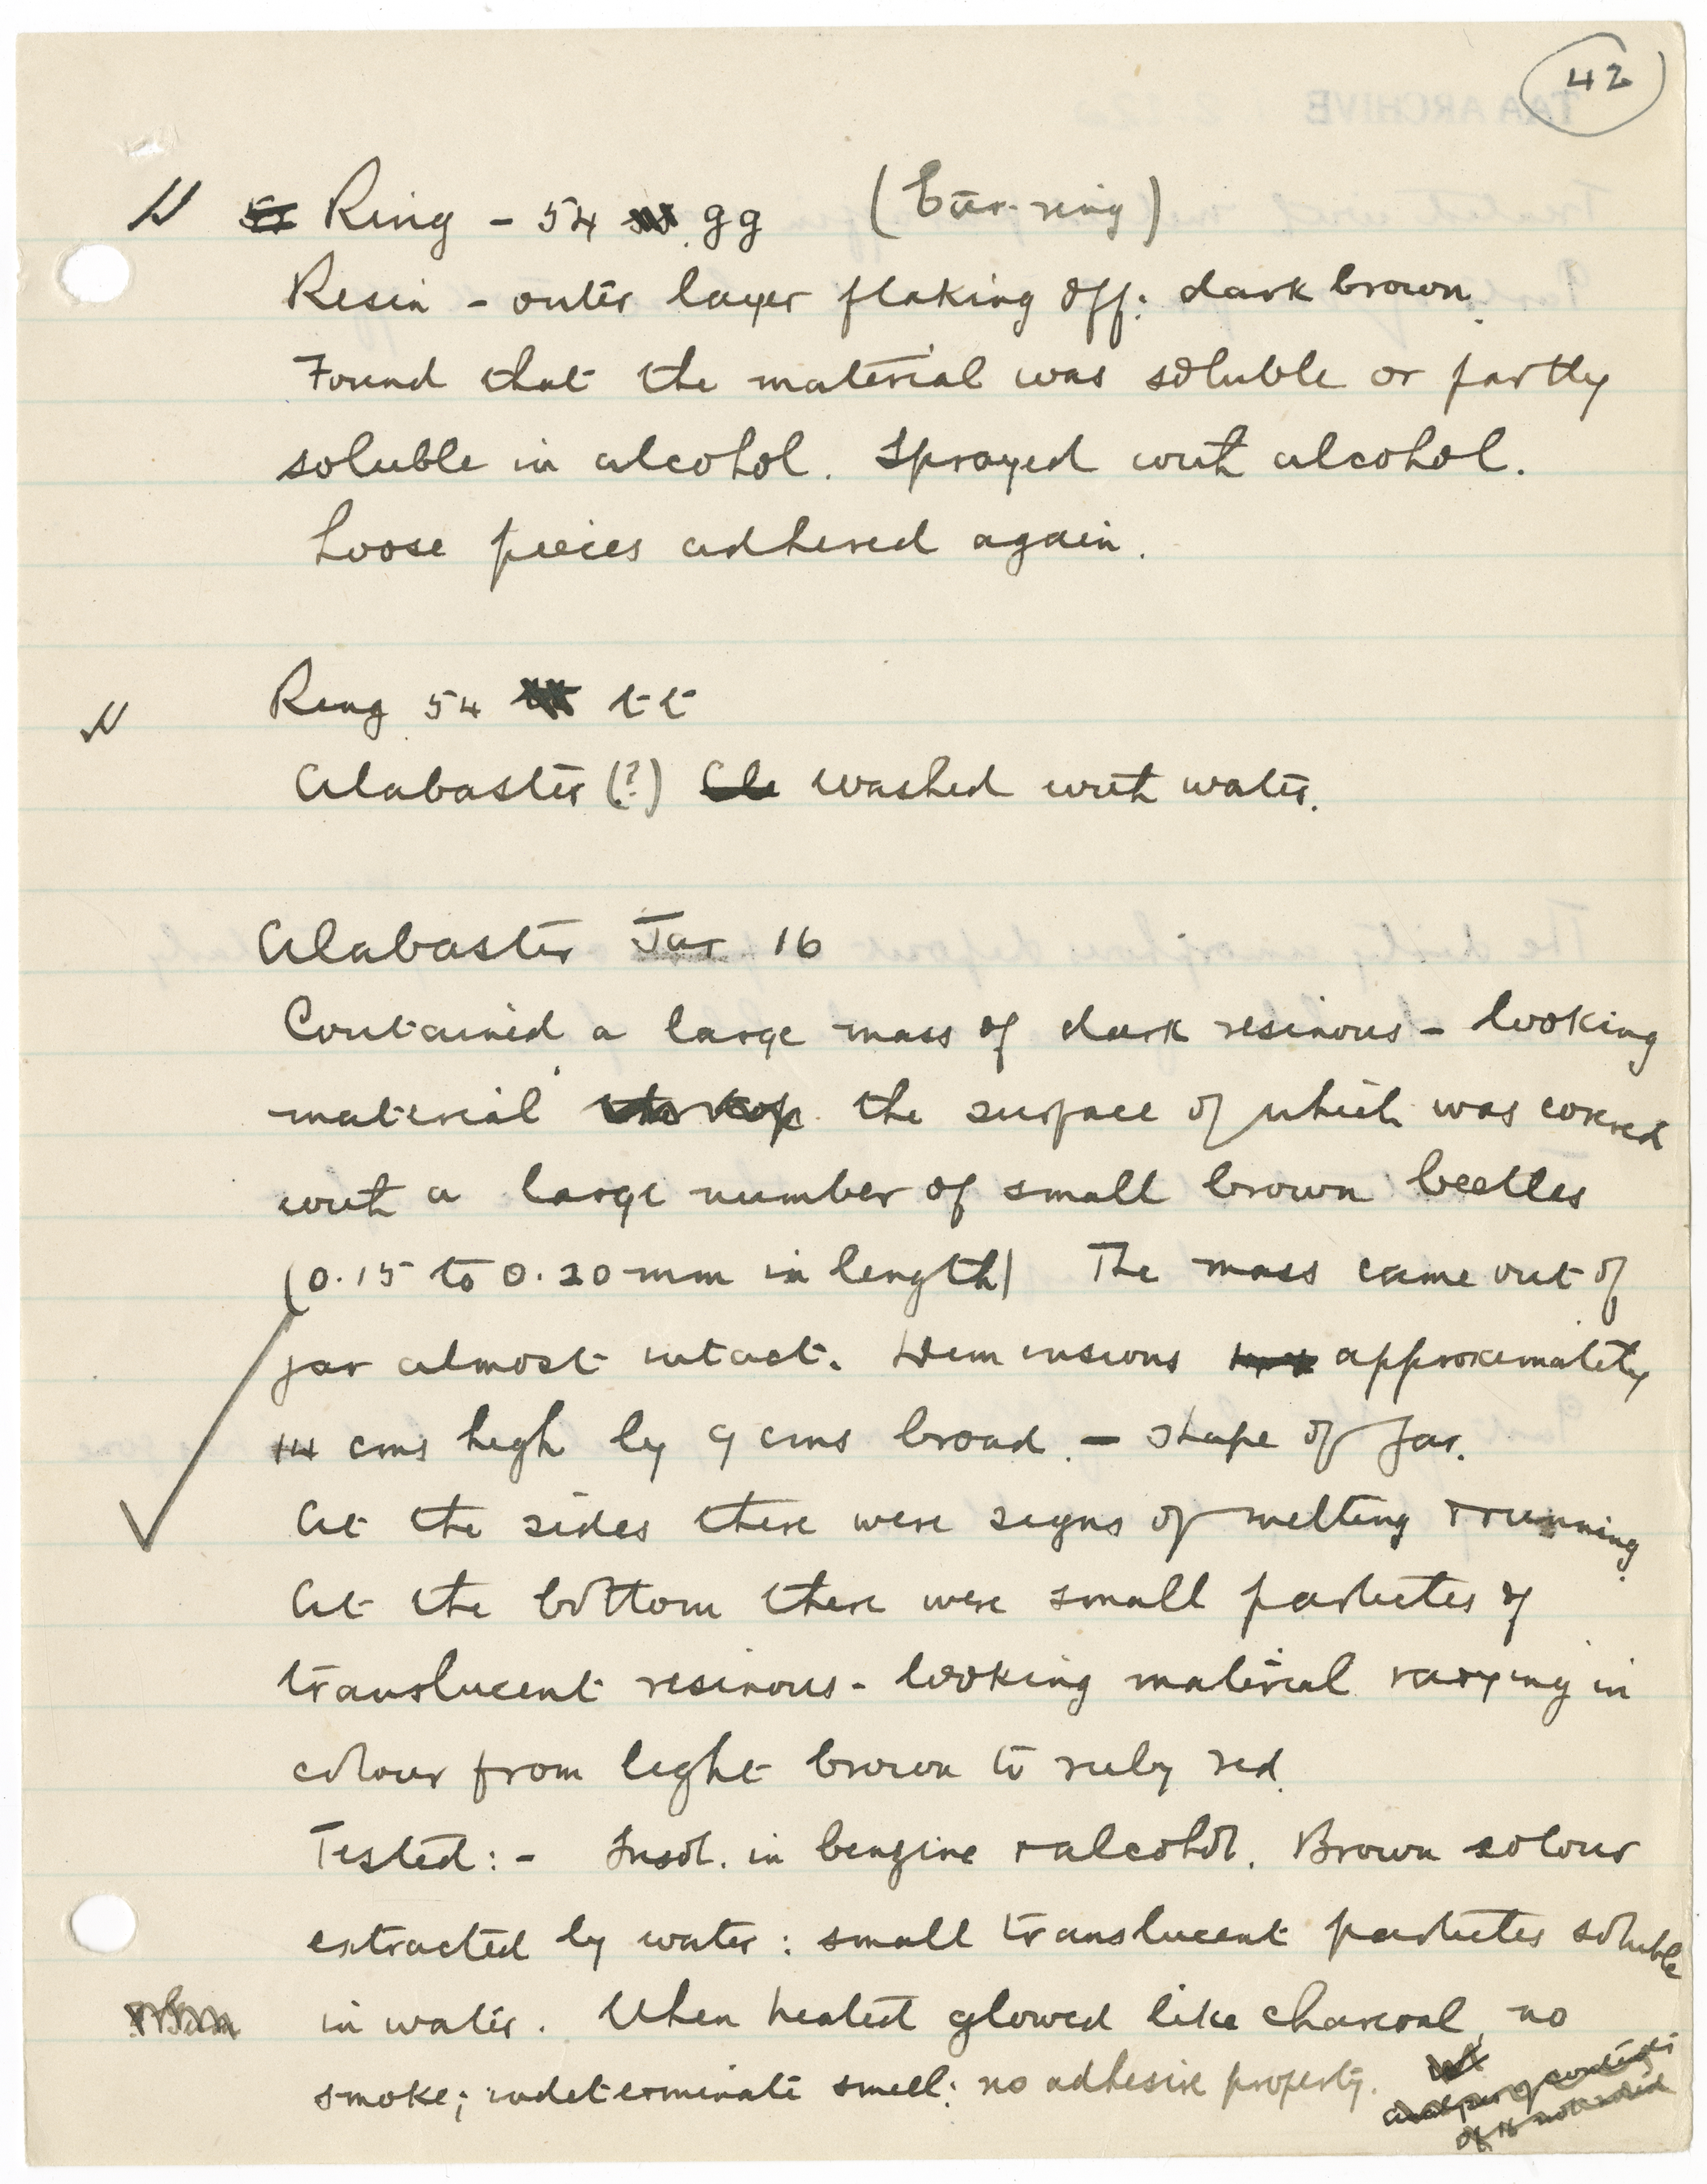 42
Ring - 54 gg (Ear-ring)
Resin - outer layer flaking off: dark brown.
Found that the material was soluble or partly
soluble in alcohol. Sprayed with alcohol.
Loose pieces adhered again.
Ring 54 tt
Alabaster (?) Cle washed with water.
Alabaster Jar 16
Contained a large mass of dark resinous-looking
material the surface of which was covered
with a large number of small brown beetles
(0.15 to 0.20 mm in length) The mass came out of
jar almost intact. Dimensions approximately
14 cms high by 9 cms broad. - shape of jar.
At the sides there were signs of melting + running.
At the bottom there were small particles of
translucent resinous-looking material varying in
colour from light brown to ruby red.
Tested:- Insol. in benzine + alcohol. Brown colour
extracted by water: small translucent particles soluble
in water. When heated glowed like charcoal, no
smoke; indeterminate smell; no adhesive property.